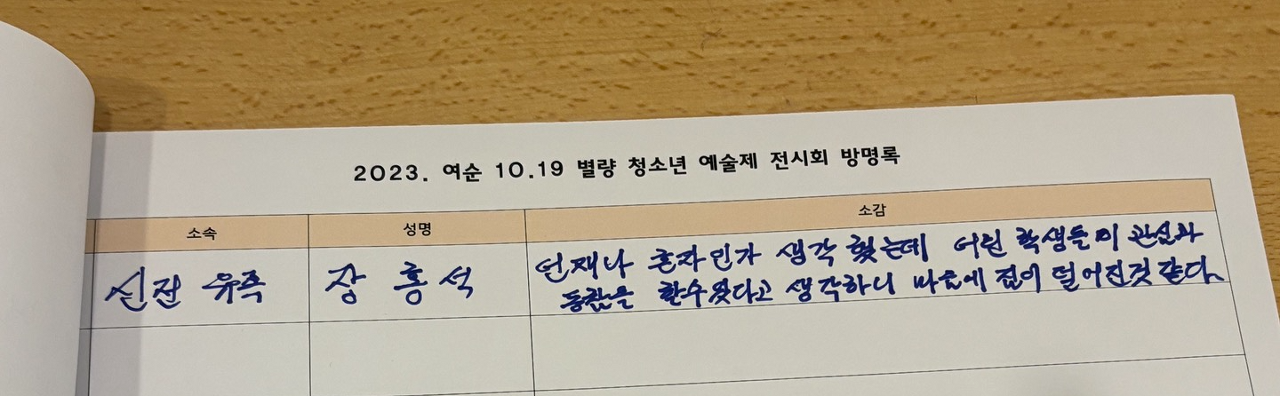 2023. 여순 10.19 별량 청소년 예술제 전시회 방명록
소속 성명 소감
신전 유족 장홍석 언제나 혼자인가 생각 했는데 어린 학생들이 관심과
동참을 할수있다고 생각하니 마음에 짐이 덜어진것 같다.